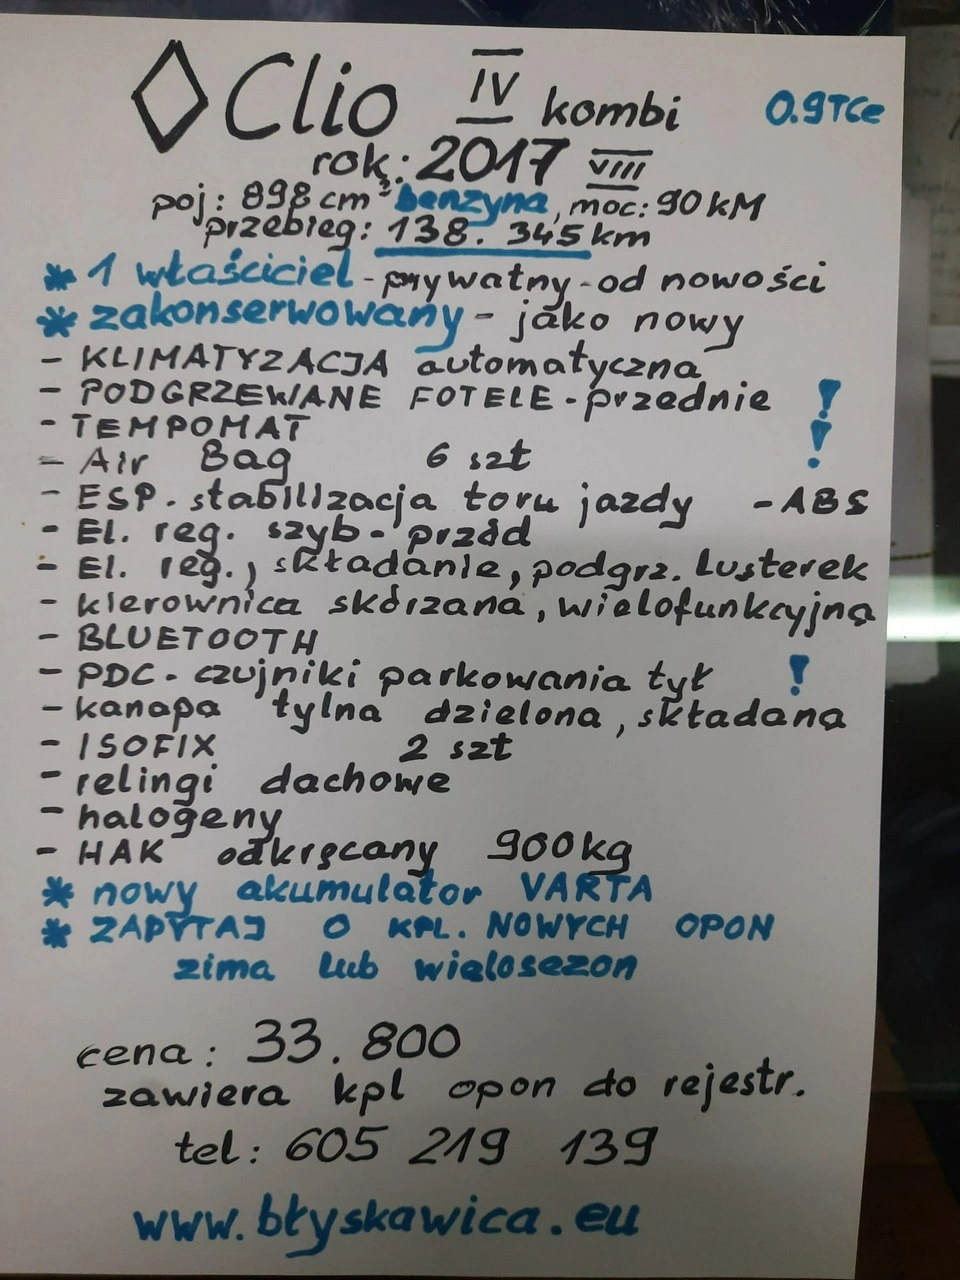 Clio IV kombi 0.9TCe
rok: 2017 VIII
poj: 898 cm³ benzyna, moc: 90 kM
przebieg: 138. 345 km
* 1 właściciel - prywatny - od nowości
* zakonserwowany - jako nowy
- KLIMATYZACJA automatyczna
- PODGRZEWANE FOTELE - przednie !
- TEMPOMAT !
- Air Bag 6 szt
- ESP - stabilizacja toru jazdy - ABS
- El. reg. szyb - przód
- El. reg., składanie, podgrz. lusterek
- kierownica skórzana, wielofunkcyjna
- BLUETOOTH
- PDC - czujniki parkowania tył !
- kanapa tylna dzielona, składana
- ISOFIX 2 szt
- relingi dachowe
- halogeny
- HAK odkręcany 900 kg
* nowy akumulator VARTA
* ZAPYTAJ O KPL. NOWYCH OPON
zima lub wielosezon
cena: 33.800
zawiera kpl opon do rejestr.
tel: 605 219 139
www.błyskawica.eu